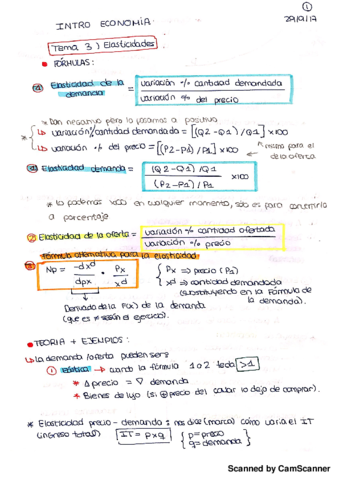 ①
INTRO ECONOMÍA.
29/9/17
Tema 3) Elasticidades
• FÓRMULAS:
① Elasticidad de la demanda = variación % cantidad demandada / variación % del precio
* Dan negativo pero lo pasamos a positivo
* ↳ variación % cantidad demandada = [(Q2-Q1)/Q1] × 100
↳ variación % del precio = [(P2-P1)/P1] × 100
para el de la oferta
① Elasticidad demanda = (Q2-Q1)/Q1 / (P2-P1)/P1 × 100
* lo podemos en cualquier momento, sólo es para convertirlo
a porcentaje
② Elasticidad de la oferta = variación % cantidad ofertada / variación % precio
Fórmula alternativa para la elasticidad
③ Np = -dxd / dpx · Px / xd { Px ⇒ precio (P1)
xd ⇒ cantidad demandada
(sustituyendo en la Fórmula de
la demanda).
Derivada de la F(x) de la demanda
(que es ≠ según el ejercicio).
• TEORIA + EJEMPLOS:
↳ La demanda/oferta pueden ser:
① Elástica → cuando la fórmula 1 o 2 te da >1
* Δ precio = ∇ demanda
* Bienes de lujo (si ⊕ precio del lo dejo de comprar).
* Elasticidad precio-demanda: nos dice (marca) cómo varía el IT
(ingreso total) IT = p×q { p=precio
q=demanda }
Scanned by CamScanner